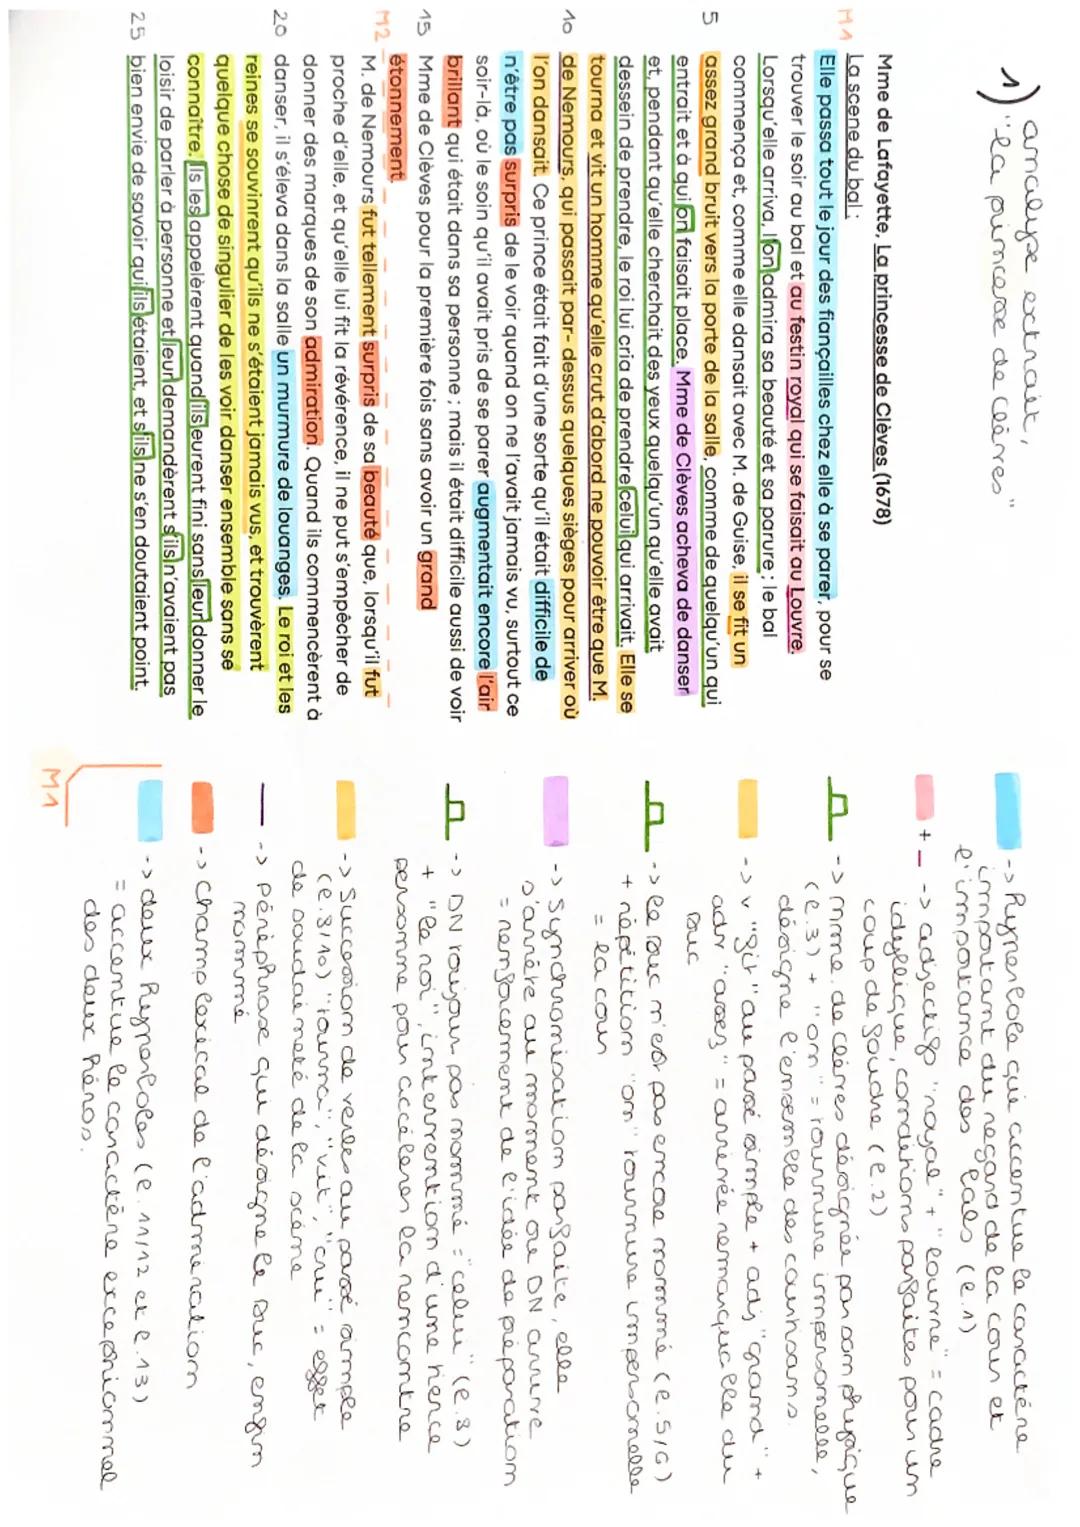 1) analyse extrait,
"La princesse de clèves"
Mme de Lafayette, La princesse de Clèves (1678)
M1 La scène du bal :
Elle passa tout le jour des fiançailles chez elle à se parer, pour se
trouver le soir au bal et au festin royal qui se faisait au Louvre.
Lorsqu'elle arriva, l'on admira sa beauté et sa parure ; le bal
commença et, comme elle dansait avec M. de Guise, il se fit un
5 assez grand bruit vers la porte de la salle, comme de quelqu'un qui
entrait et à qui on faisait place. Mme de Clèves acheva de danser
et, pendant qu'elle cherchait des yeux quelqu'un qu'elle avait
dessein de prendre, le roi lui cria de prendre celui qui arrivait. Elle se
tourna et vit un homme qu'elle crut d'abord ne pouvoir être que M.
10 de Nemours, qui passait par- dessus quelques sièges pour arriver où
l'on dansait. Ce prince était fait d'une sorte qu'il était difficile de
n'être pas surpris de le voir quand on ne l'avait jamais vu, surtout ce
soir-là, où le soin qu'il avait pris de se parer augmentait encore l'air
brillant qui était dans sa personne ; mais il était difficile aussi de voir
15 Mme de Clèves pour la première fois sans avoir un grand
étonnement.
M2 M. de Nemours fut tellement surpris de sa beauté que, lorsqu'il fut
proche d'elle, et qu'elle lui fit la révérence, il ne put s'empêcher de
donner des marques de son admiration. Quand ils commencèrent à
20 danser, il s'éleva dans la salle un murmure de louanges. Le roi et les
reines se souvinrent qu'ils ne s'étaient jamais vus, et trouvèrent
quelque chose de singulier de les voir danser ensemble sans se
connaître. Ils les appelèrent quand ils eurent fini sans leur donner le
loisir de parler à personne et leur demandèrent s'ils n'avaient pas
25 bien envie de savoir qui ils étaient, et s'ils ne s'en doutaient point.
-> Hyperbole qui accentue le caractère
important du regard de la cour et
l'importance des bals (l.1)
+ _ -> adjectifs "royal" + "Louvre" = cadre
idyllique, conditions parfaites pour un
coup de foudre (l.2)
-> mme. de clèves désignée par son physique
(l.3) + "on" = tournure impersonelle,
désigne l'ensemble des courtisans.
-> v "fit" au passé simple + adj "grand" +
adv "assez" = arrivée remarquable du
Duc
-> le Duc n'est pas encore nommé (l.5/6)
+ répétition "on" tournure impersonelle
= la cour
-> Synchronisation parfaite, elle
s'arrête au moment ou DN arrive
= renforcement de l'idée de préparation
-> DN toujours pas nommé = "celui" (l.8)
+ "le roi", intervention d'une tierce
personne pour accélérer la rencontre
-> Succession de verbes au passé simple
(l.9/10) "tourna", "vit", "cru" = effet
de soudaineté de la scène
-> Périphrase qui désigne le Duc, enfin
nommé
-> Champ lexical de l'admiration
-> deux Hyperboles (l.11/12 et l.13)
= accentue le caractère exceptionnel
des deux héros.
M1